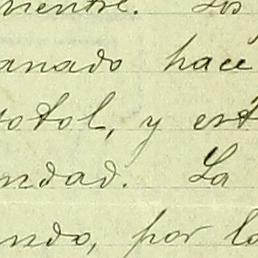 mente. Los
anado hace
totol, y est
ndad. La
ando, por lo